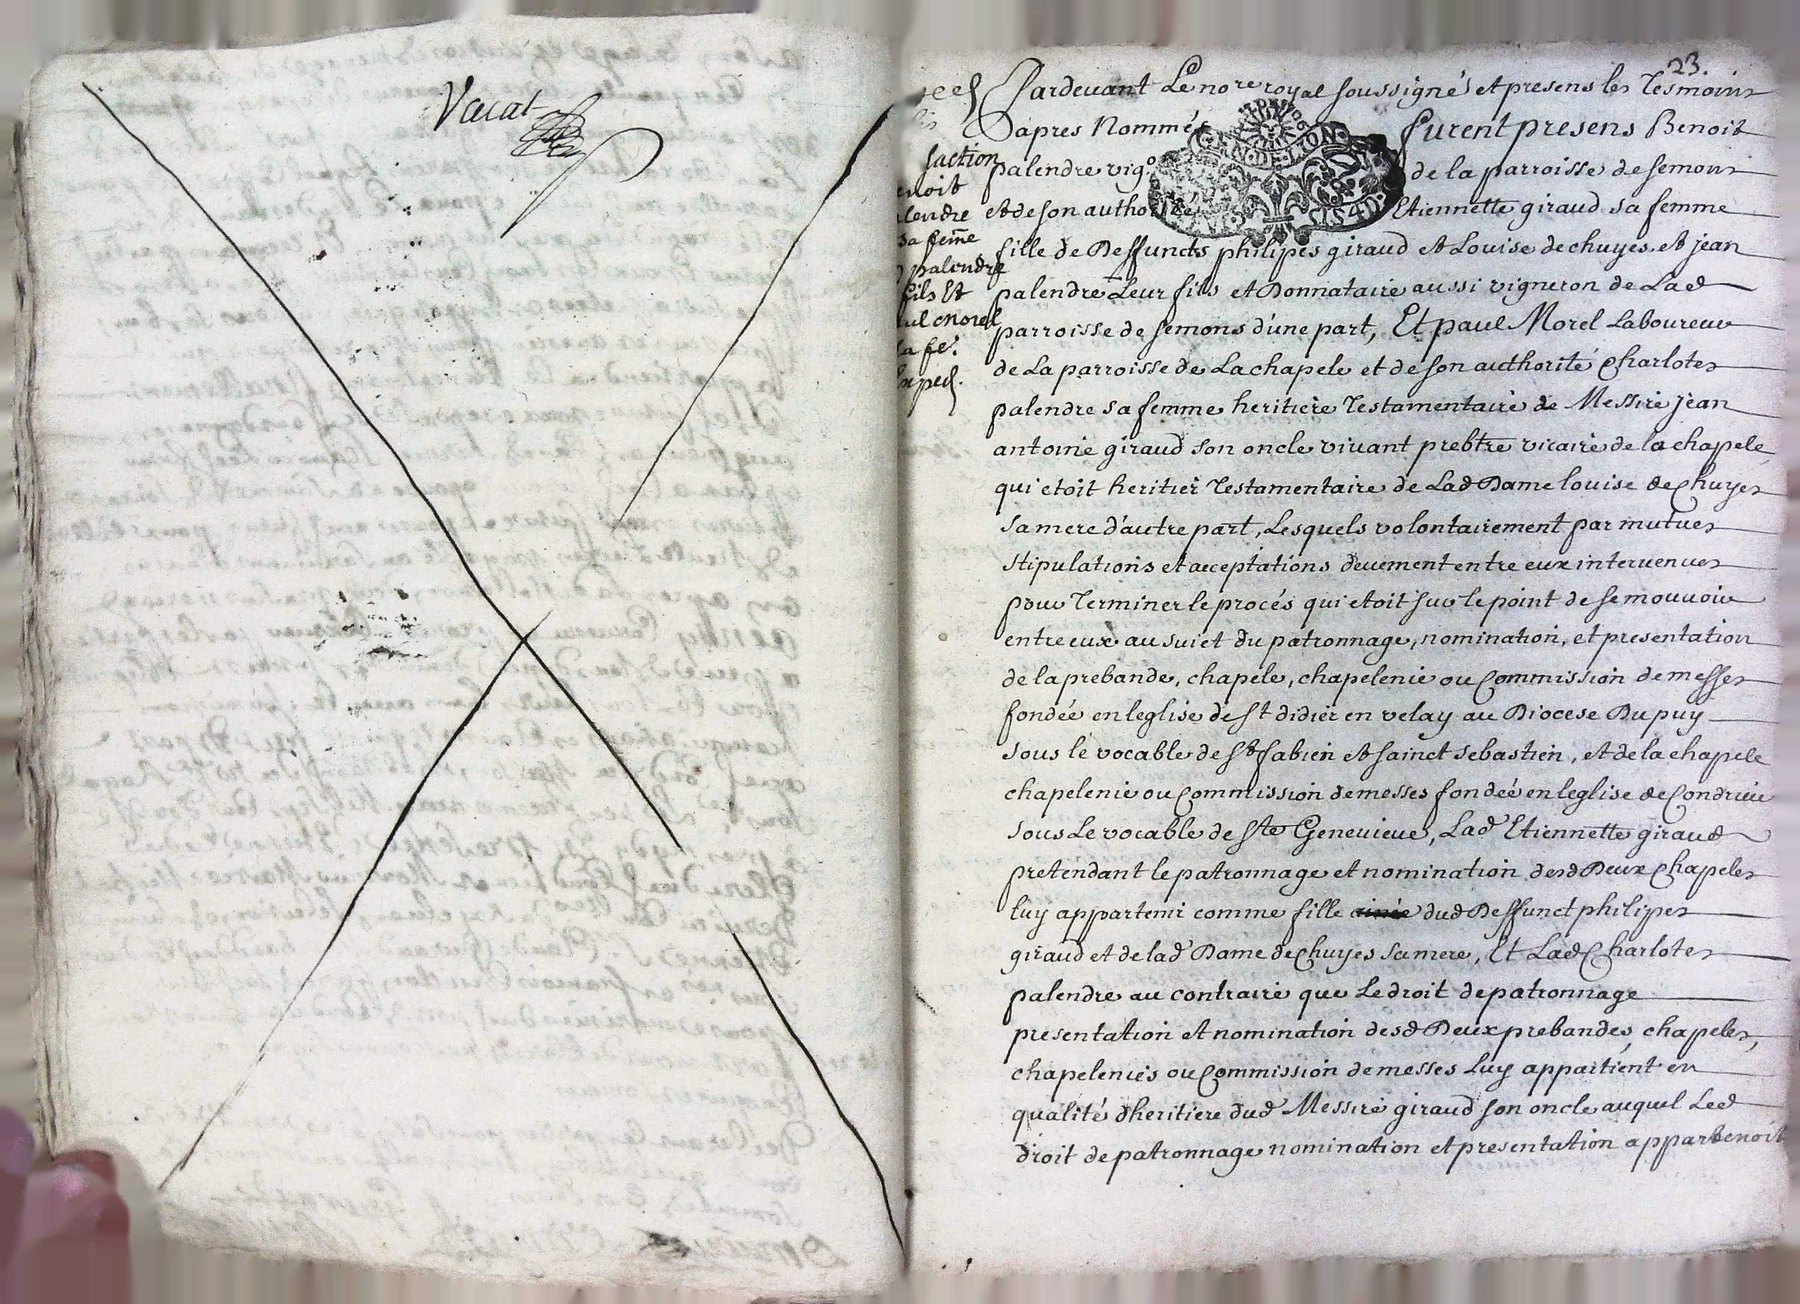 Vacat
23.
Pardevant Le nore royal soussigné et presens les Tesmoins
apres Nommés furent presens Benoit
palendre vigo de la parroisse de semons
et de son authorité Etiennette giraud sa femme
fille de Deffuncts philipes giraud et Louise de chuyes et jean
palendre Leur fils et Donnataire aussi vigneron de Lad
parroisse de semons d'une part, Et paul Morel Laboureur
de La parroisse de Lachapele et de son authorité Charlotes
palendre sa femme heritiere Testamentaire de Messire jean
antoine giraud son oncle vivant prebtre vicaire de la chapele
qui etoit heritier Testamentaire de Lad Dame louise de Chuyes
sa mere d'autre part, Lesquels volontairement par mutues
stipulations et acceptations deuement entre eux intervenues
pour Terminer le procés qui etoit sur le point de se mouvoir
entre eux au suiet du patronnage, nomination, et presentation
de la prebande, chapele, chapelenie ou Commission de messes
fondée en leglise de st didier en velay au Diocese Du puy
sous le vocable de st fabien et sainct sebastien, et de la chapele
chapelenie ou Commission de messes fondée en leglise de Condrieu
sous Le vocable de ste Genevieve, Lad Etiennette giraud
pretendant le patronnage et nomination desd Deux Chapeles
luy appartenir comme fille ainée dud Deffunct philipes
giraud et de lad Dame de Chuyes sa mere, Et Lad Charlotes
palendre au contraire que Le droit de patronnage
presentation et nomination desd Deux prebandes, chapeles,
chapelenies ou Commission de messes Luy appartient en
qualités d'heritiere dud Messire giraud son oncle auquel Led
droit de patronnage nomination et presentation appartenoit
saction
enoit
lendre
sa feme
palendre
fils Et
ul morel
la fe.
exped.
GEN. DE LYON.